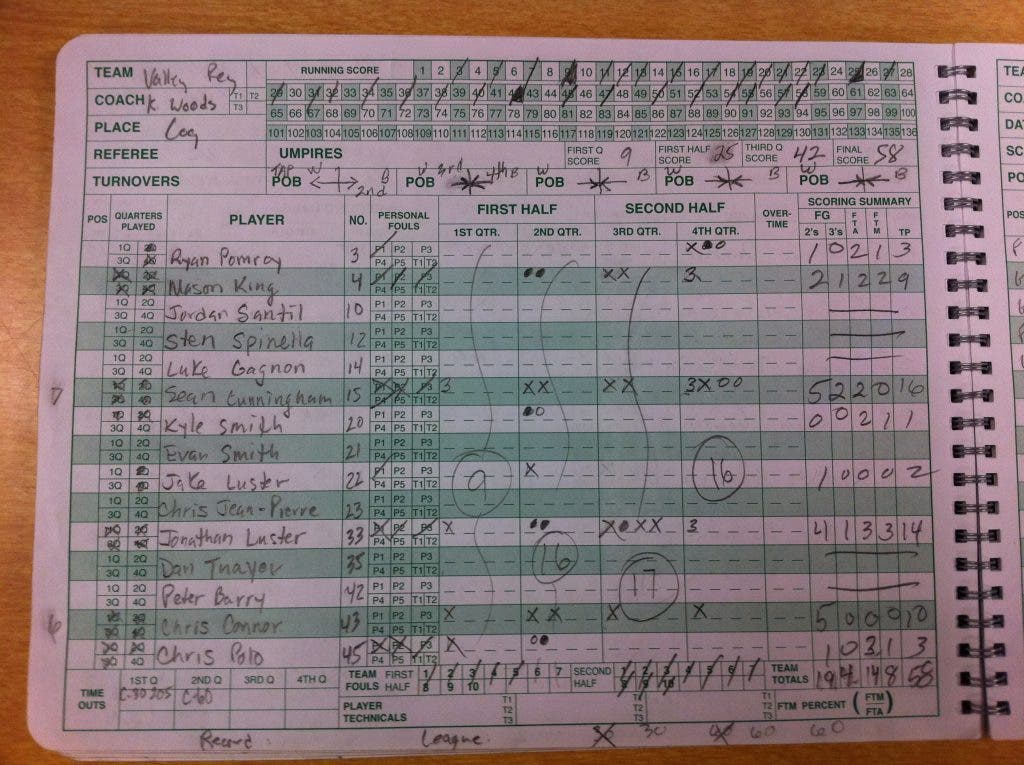 TEAM Valley Reg RUNNING SCORE 1 2 3 4 5 6 7 8 9 10 11 12 13 14 15 16 17 18 19 20 21 22 23 24 25 26 27 28
COACH K. Woods T1 T2 T3 29 30 31 32 33 34 35 36 37 38 39 40 41 42 43 44 45 46 47 48 49 50 51 52 53 54 55 56 57 58 59 60 61 62 63 64
65 66 67 68 69 70 71 72 73 74 75 76 77 78 79 80 81 82 83 84 85 86 87 88 89 90 91 92 93 94 95 96 97 98 99 100
PLACE 101 102 103 104 105 106 107 108 109 110 111 112 113 114 115 116 117 118 119 120 121 122 123 124 125 126 127 128 129 130 131 132 133 134 135 136
REFEREE UMPIRES FIRST Q SCORE 9 FIRST HALF SCORE 25 THIRD Q SCORE 42 FINAL SCORE 58
TURNOVERS POB W B 2nd POB 3rd 4th B POB W B POB W B POB W B
POS QUARTERS PLAYED PLAYER NO. PERSONAL FOULS FIRST HALF SECOND HALF OVER-TIME SCORING SUMMARY
1ST QTR. 2ND QTR. 3RD QTR. 4TH QTR. FG 2's 3's FTA FTM TP
1Q 2Q 3Q 4Q Ryan Pomroy 3 P1 P2 P3 P4 P5 T1 T2 1 0 2 1 3
Mason King 4 P1 P2 P3 P4 P5 T1 T2 3 2 1 2 2 9
1Q 2Q 3Q 4Q Jordan Santil 10 P1 P2 P3 P4 P5 T1 T2
1Q 2Q 3Q 4Q Sten Spinella 12 P1 P2 P3 P4 P5 T1 T2
1Q 2Q 3Q 4Q Luke Gagnon 14 P1 P2 P3 P4 P5 T1 T2
Sean Cunningham 15 P1 P2 P3 P4 P5 T1 T2 3 XX XX 3X00 5 2 2 0 16
Kyle Smith 20 P1 P2 P3 P4 P5 T1 T2 0 0 2 1 1
1Q 2Q 3Q 4Q Evan Smith 21 P1 P2 P3 P4 P5 T1 T2
1Q 2Q 3Q 4Q Jake Luster 22 P1 P2 P3 P4 P5 T1 T2 9 X 16 1 0 0 0 2
1Q 2Q 3Q 4Q Chris Jean-Pierre 23 P1 P2 P3 P4 P5 T1 T2
Jonathan Luster 33 P1 P2 P3 P4 P5 T1 T2 X 3 4 1 3 3 14
1Q 2Q 3Q 4Q Dan 35 P1 P2 P3 P4 P5 T1 T2 16
1Q 2Q 3Q 4Q Peter Barry 42 P1 P2 P3 P4 P5 T1 T2 17
Chris Connor 43 P1 P2 P3 P4 P5 T1 T2 X XX X X 5 0 0 0 10
Chris Polo 45 P1 P2 P3 P4 P5 T1 T2 X 1 0 3 1 3
TIME OUTS 1ST Q 2ND Q 3RD Q 4TH Q TEAM FOULS FIRST HALF 1 2 3 4 5 6 7 8 9 10 SECOND HALF 1 2 3 4 5 6 7 8 9 10 TEAM TOTALS 19 4 14 8 58
C-30 C-60 PLAYER TECHNICALS T1 T2 T3 T1 T2 T3 T1 T2 T3 FTM PERCENT (FTM FTA)
Record League 30 60 60